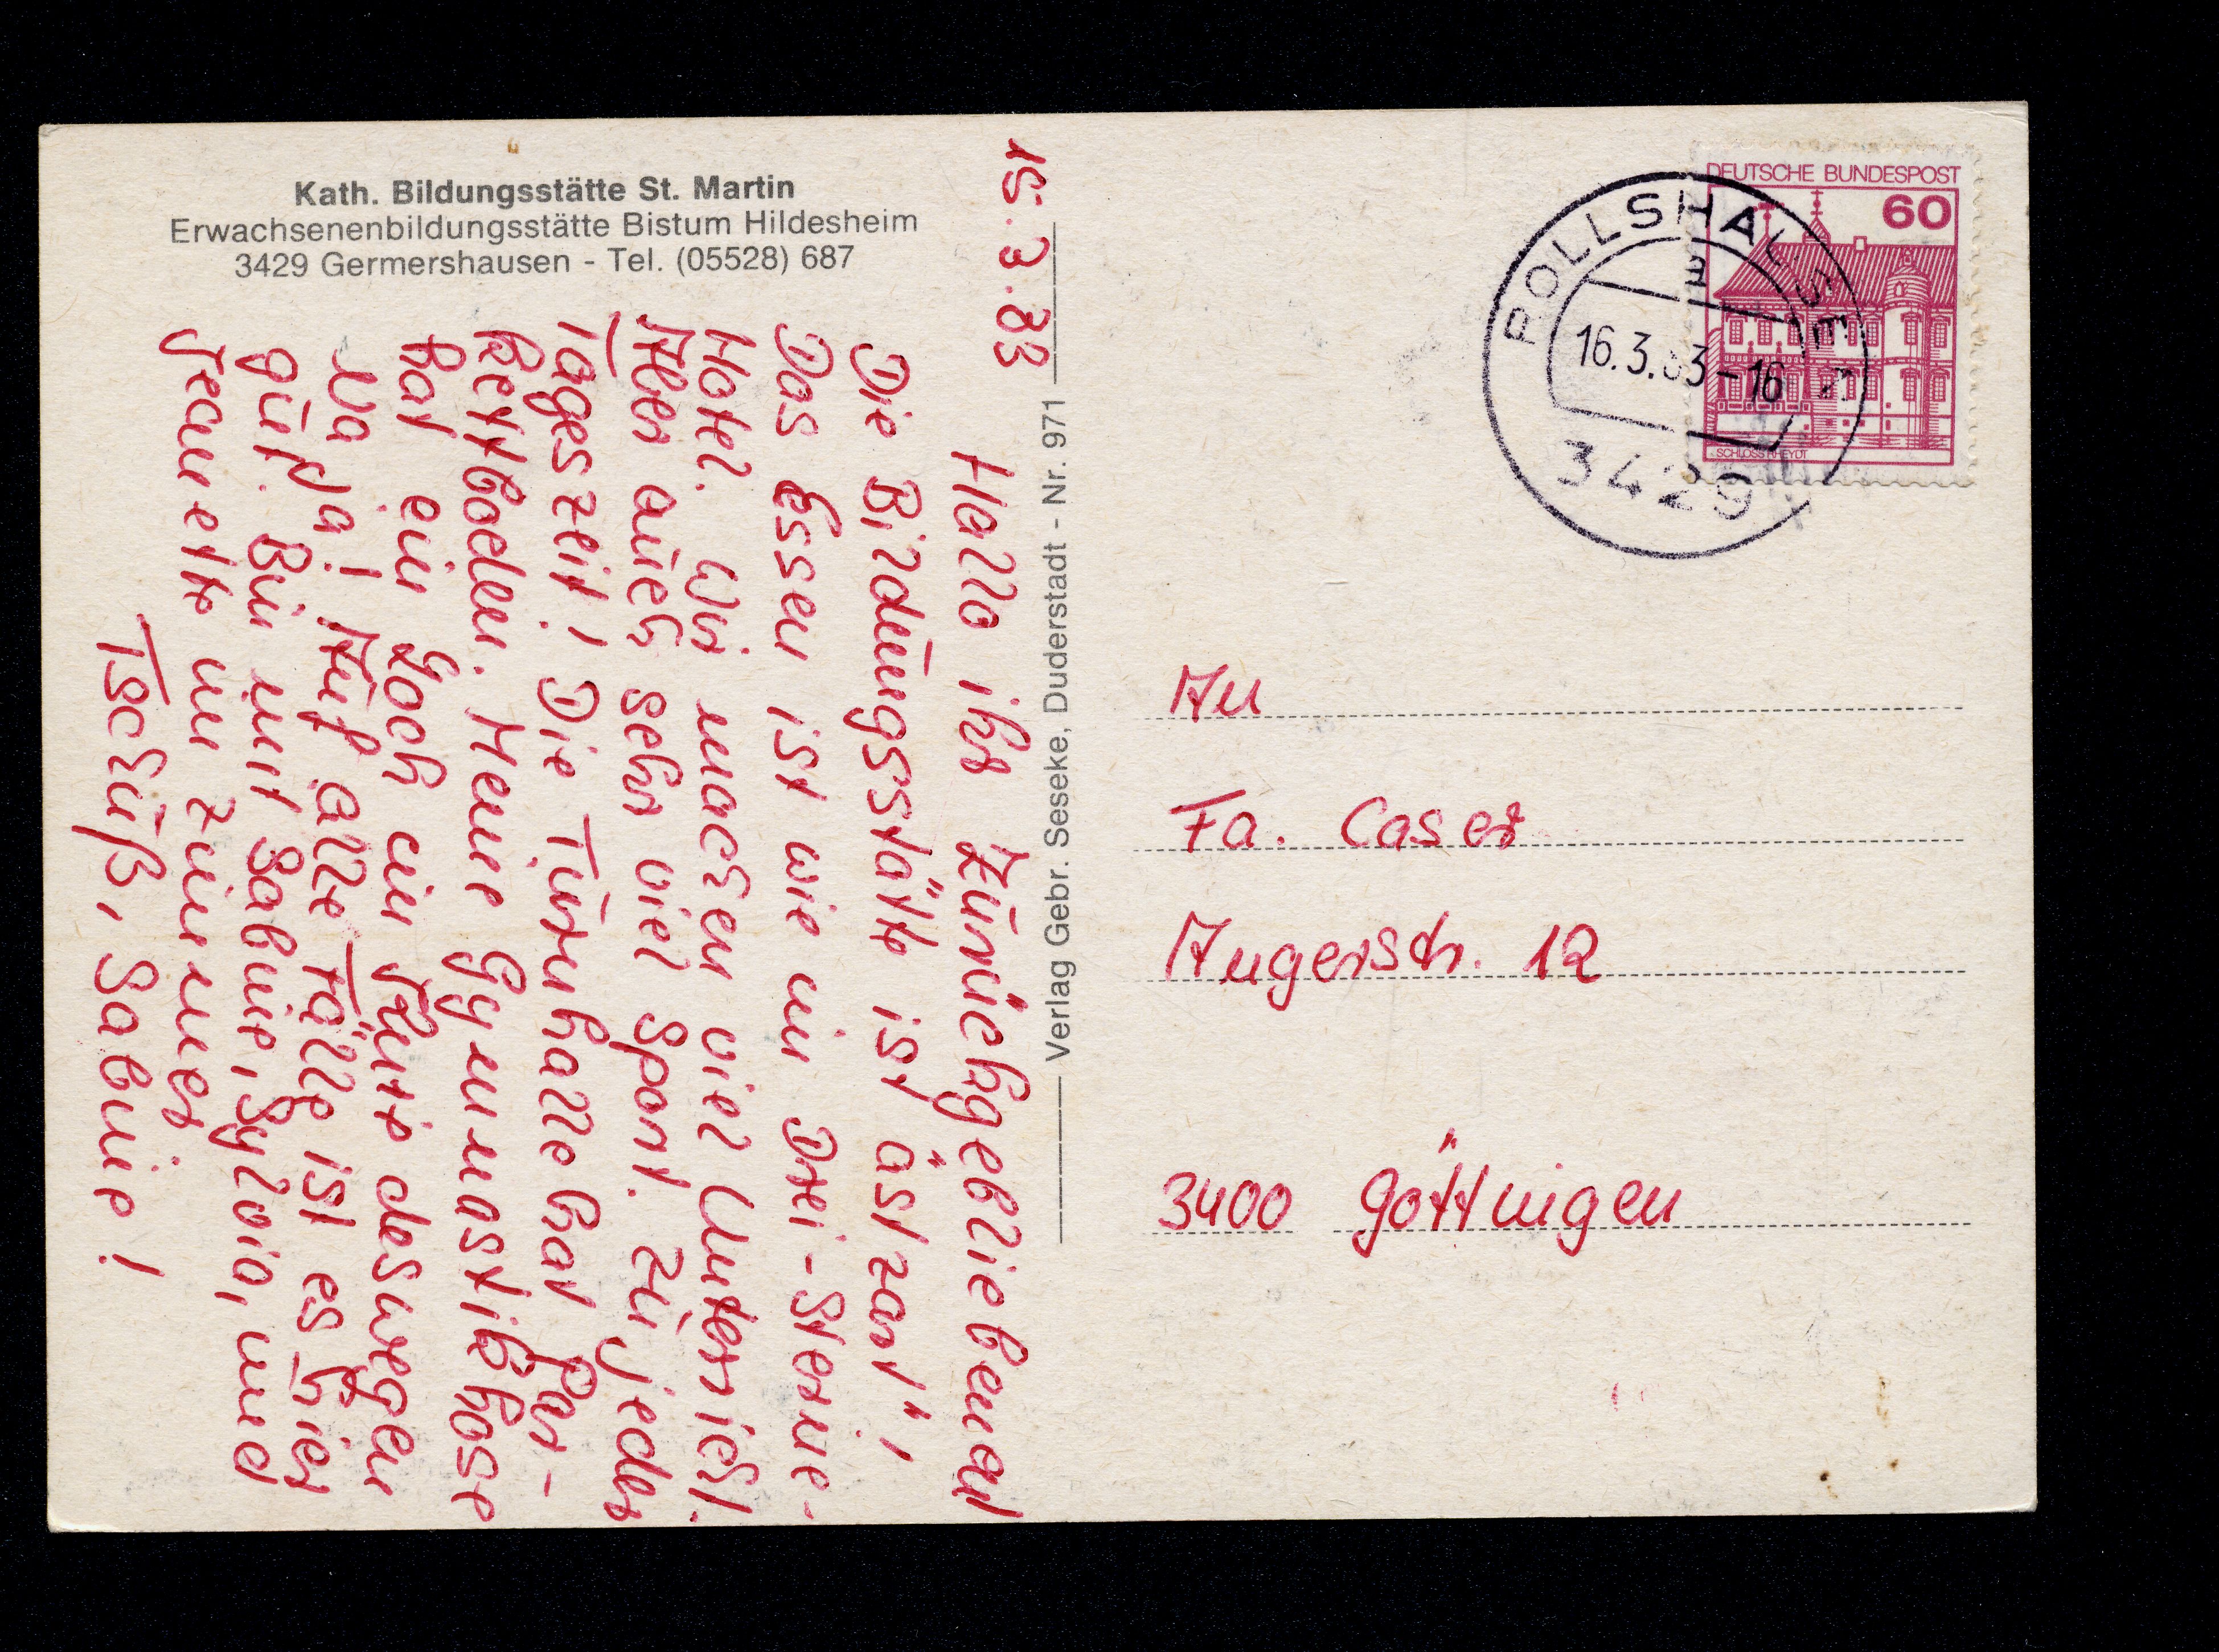 Kath. Bildungsstätte St. Martin
Erwachsenenbildungsstätte Bistum Hildesheim
3429 Germershausen - Tel. (05528) 687
15.3.83
Hallo ihr Zurückgebliebenen!
Die Bildungsstätte ist "astzart",
Das Essen ist wie im Drei-Sterne-
Hotel. Wir machen viel Unterricht.
Aber auch sehr viel Sport. Zu jeder
Tageszeit! Die Turnhalle hat Par-
kettboden. Meine Gymnastikhose
hat ein Loch am Knie deswegen
Na ja! Auf alle Fälle ist es hier
gut. Bin mit Sabine, Sylvia, und
Jeanette im Zimmer
Tschüß, Sabine!
Verlag Gebr. Seseke, Duderstadt - Nr. 971
DEUTSCHE BUNDESPOST
60
SCHLOSS RHEYDT
ROLLSHAUSEN
16.3.83-16
3429
An
Fa. Caser
Angerstr. 12
3400 Göttingen